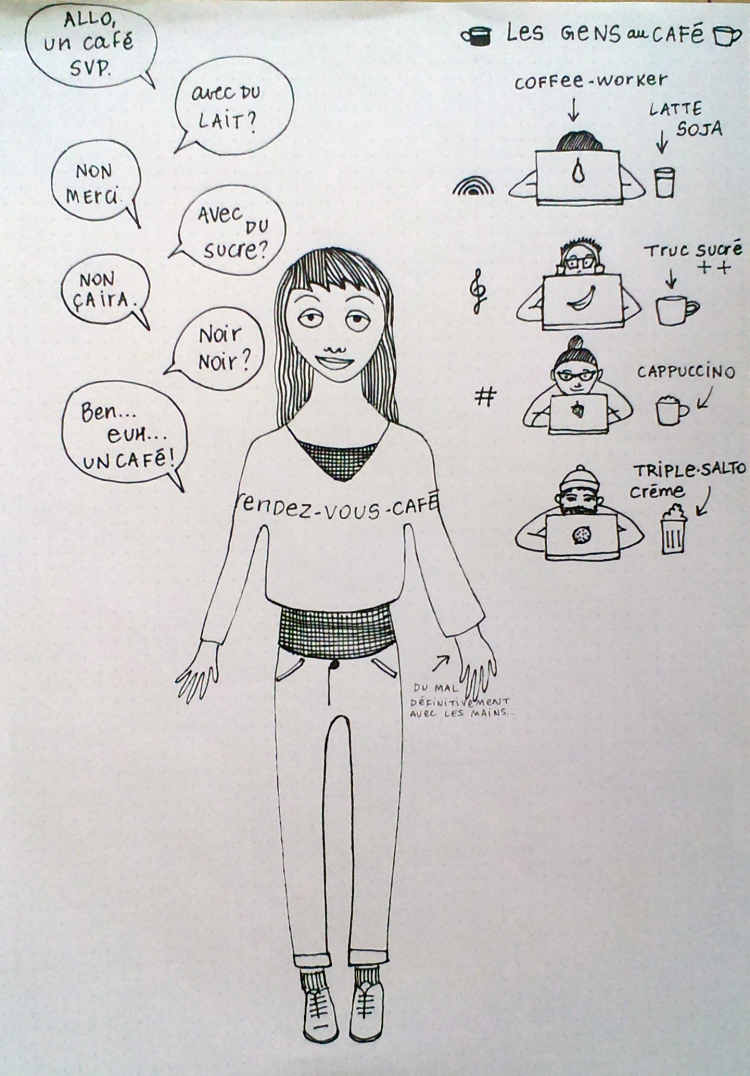 ALLO,
un café
SVP.
avec DU
LAIT?
NON
Merci.
Avec DU
sucre?
NON
ÇA irA.
Noir
Noir?
Ben...
euH...
UN CAFé!
rendez-vous-CAFÉ
DU MAL
DÉFINITIVEMENT
AVEC LES MAINS...
Les Gens au CAFé
COFFee-worker
LATTE
SOJA
Truc sucré
++
#
CAPPUCCINO
TRIPLe-SALTO
créme